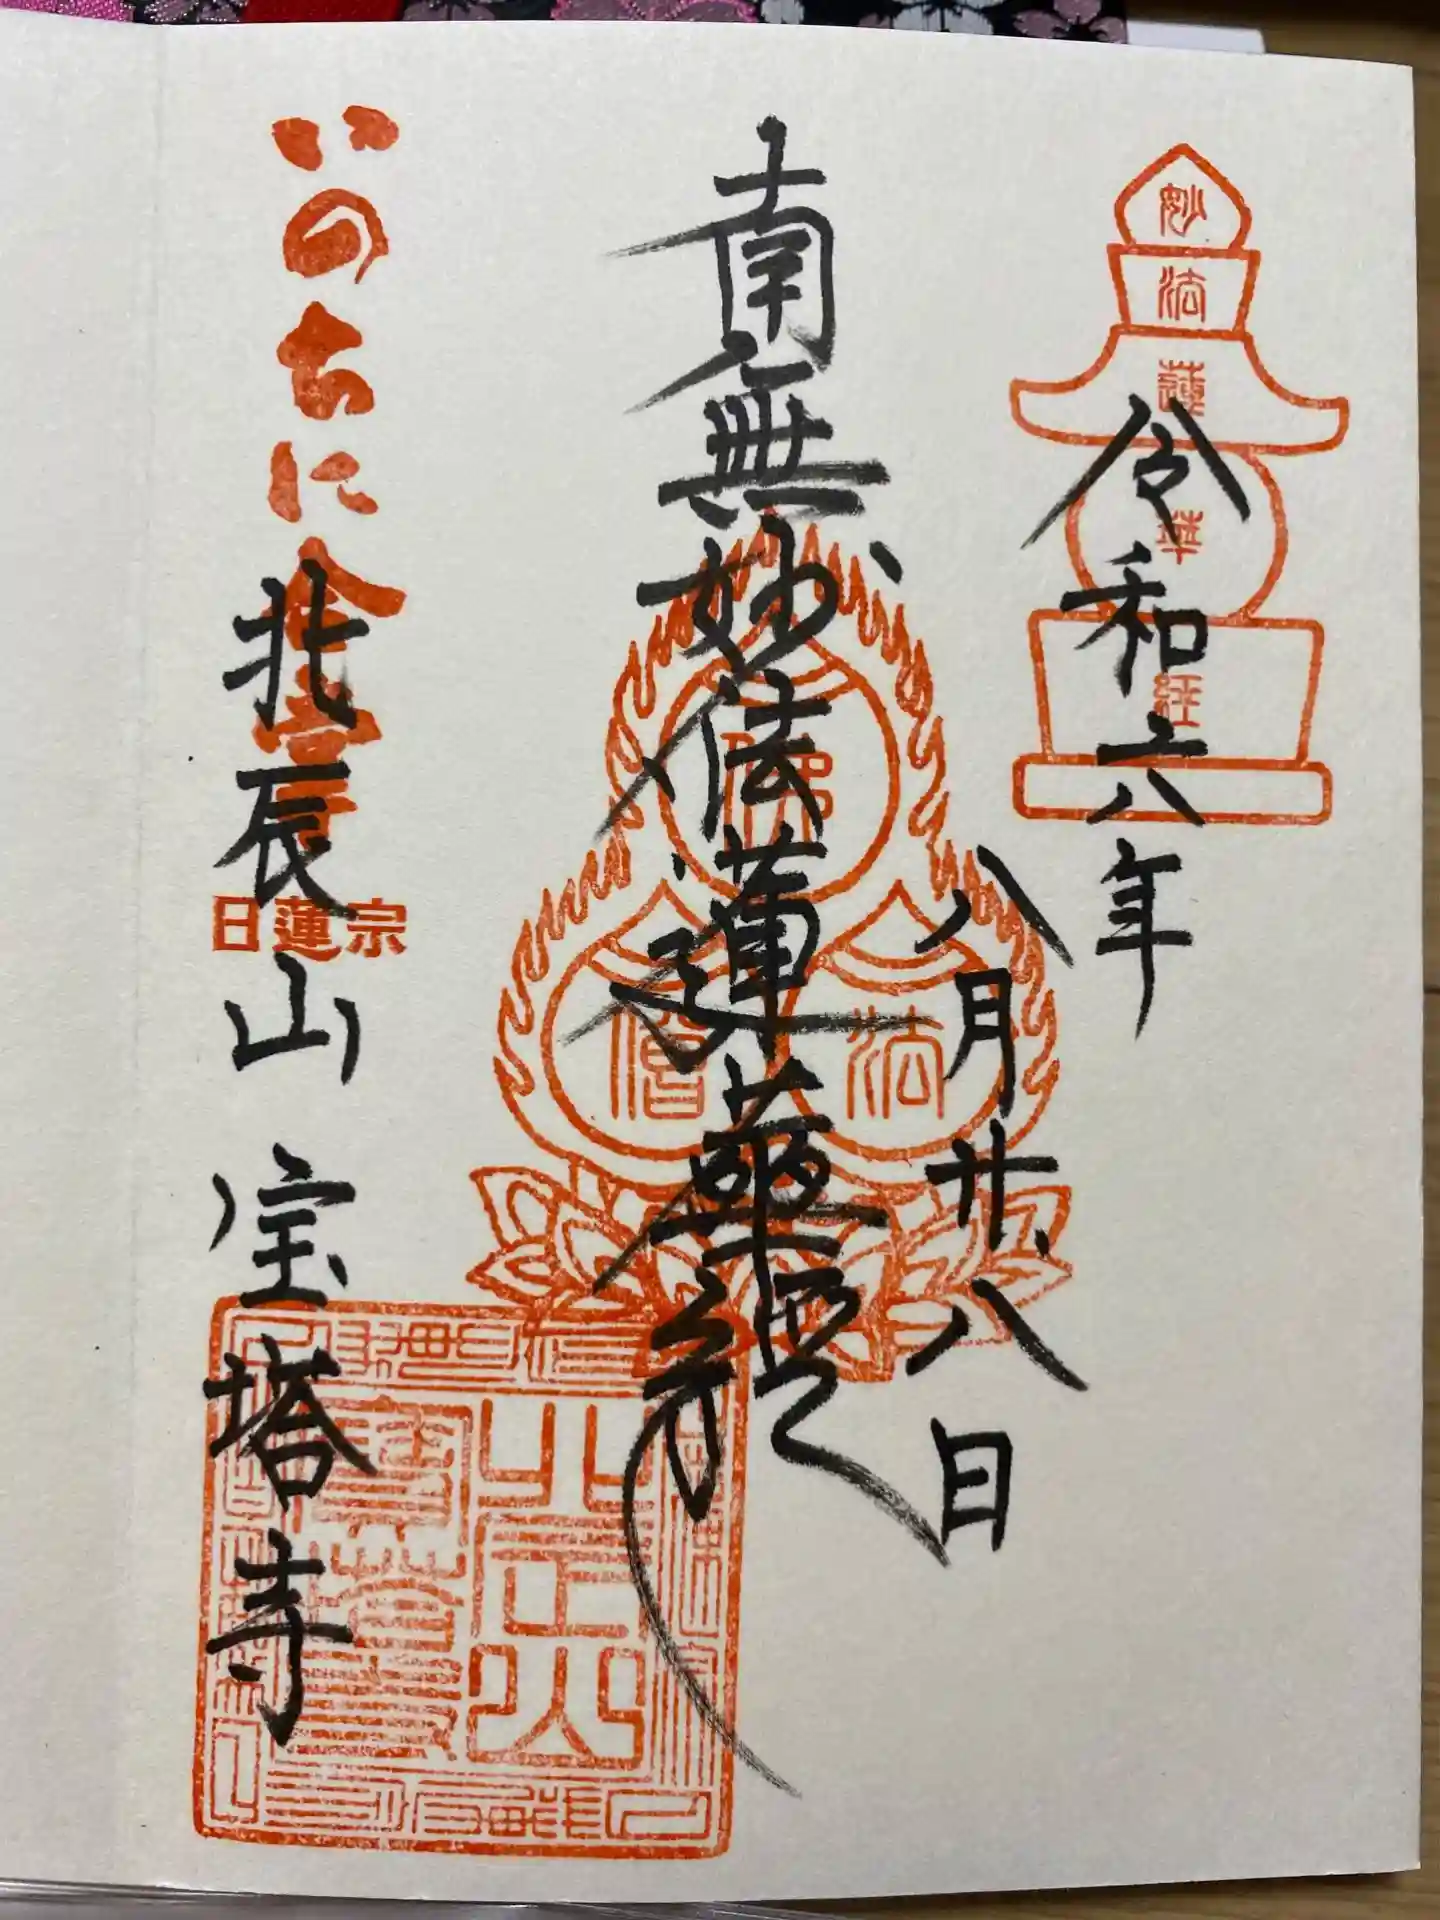 妙
法
蓮
華
経
令和六年
八月廿八日
南無妙法蓮華経
佛
僧
法
いのちに合掌
日蓮宗
北辰山 宝塔寺